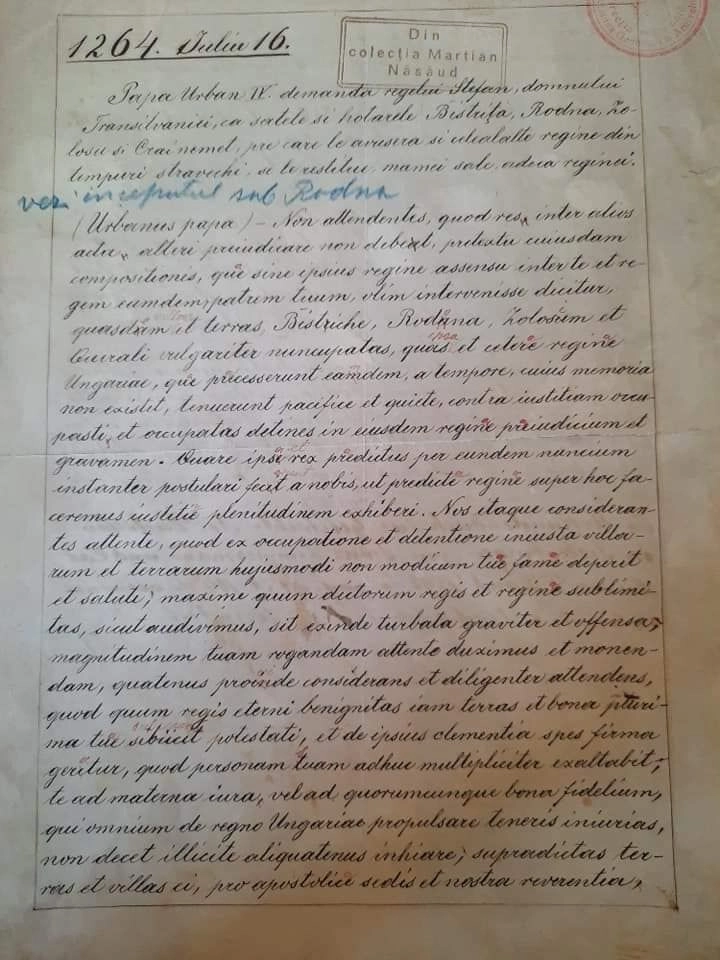 1264. Iuliu 16.
Din
colecția Martian
Năsăud
Papa Urban IV. demanda regelui Stefan, domnului
Transilvaniei, ca satele si hotarele Bistrița, Rodna, Zo-
losu si Crainemet, pre care le avusera si celealalte regine din
tempuri stravechi, se le restitue mamei sale, adeca reginei.
vezi inceputul sub Rodna
(Urbanus papa) – Non attendentes, quod res inter alios
acta, alteri preiudicare non debent, pretextu cuiusdam
compositionis, que sine ipsius regine assensu inter te et re-
gem eumdem, patrem tuum, olim intervenisse dicitur,
quasdam et terras, Bistriche, Rodana, Zolosum et
Querali vulgariter nuncupatas, quas et cetere regine
Ungariae, que precesserunt eamdem, a tempore, cuius memoria
non existit, tenuerunt pacifice et quiete, contra iustitiam occu-
pasti, et occupatas detines in eiusdem regine preiudicium et
gravamen. Quare ipse rex predictus per eundem nuncium
instanter postulari fecit a nobis, ut predicte regine super hoc fa-
ceremus iustitie plenitudinem exhiberi. Nos itaque consideran-
tes attente, quod ex occupatione et detentione iniusta villa-
rum et terrarum hujusmodi non modicum tue fame deperit
et saluti; maxime quum dictorum regis et regine sublimi-
tas, sicut audivimus, sit exinde turbata graviter et offensa,
magnitudinem tuam rogandam attente duximus et monen-
dam, quatenus proinde considerans et diligenter attendens,
quod quum regis eterni benignitas iam terras et bona pluri-
ma tue subiicit potestati, et de ipsius clementia spes firma
geritur, quod personam tuam adhuc multipliciter exaltabit,
te ad materna iura, vel ad quorumcunque bona fidelium,
qui omnium de regno Ungariae propulsare teneris iniurias,
non decet illicite aliquatenus inhiare; supradictas ter-
ras et villas ei, pro apostolice sedis et nostra reverentia,